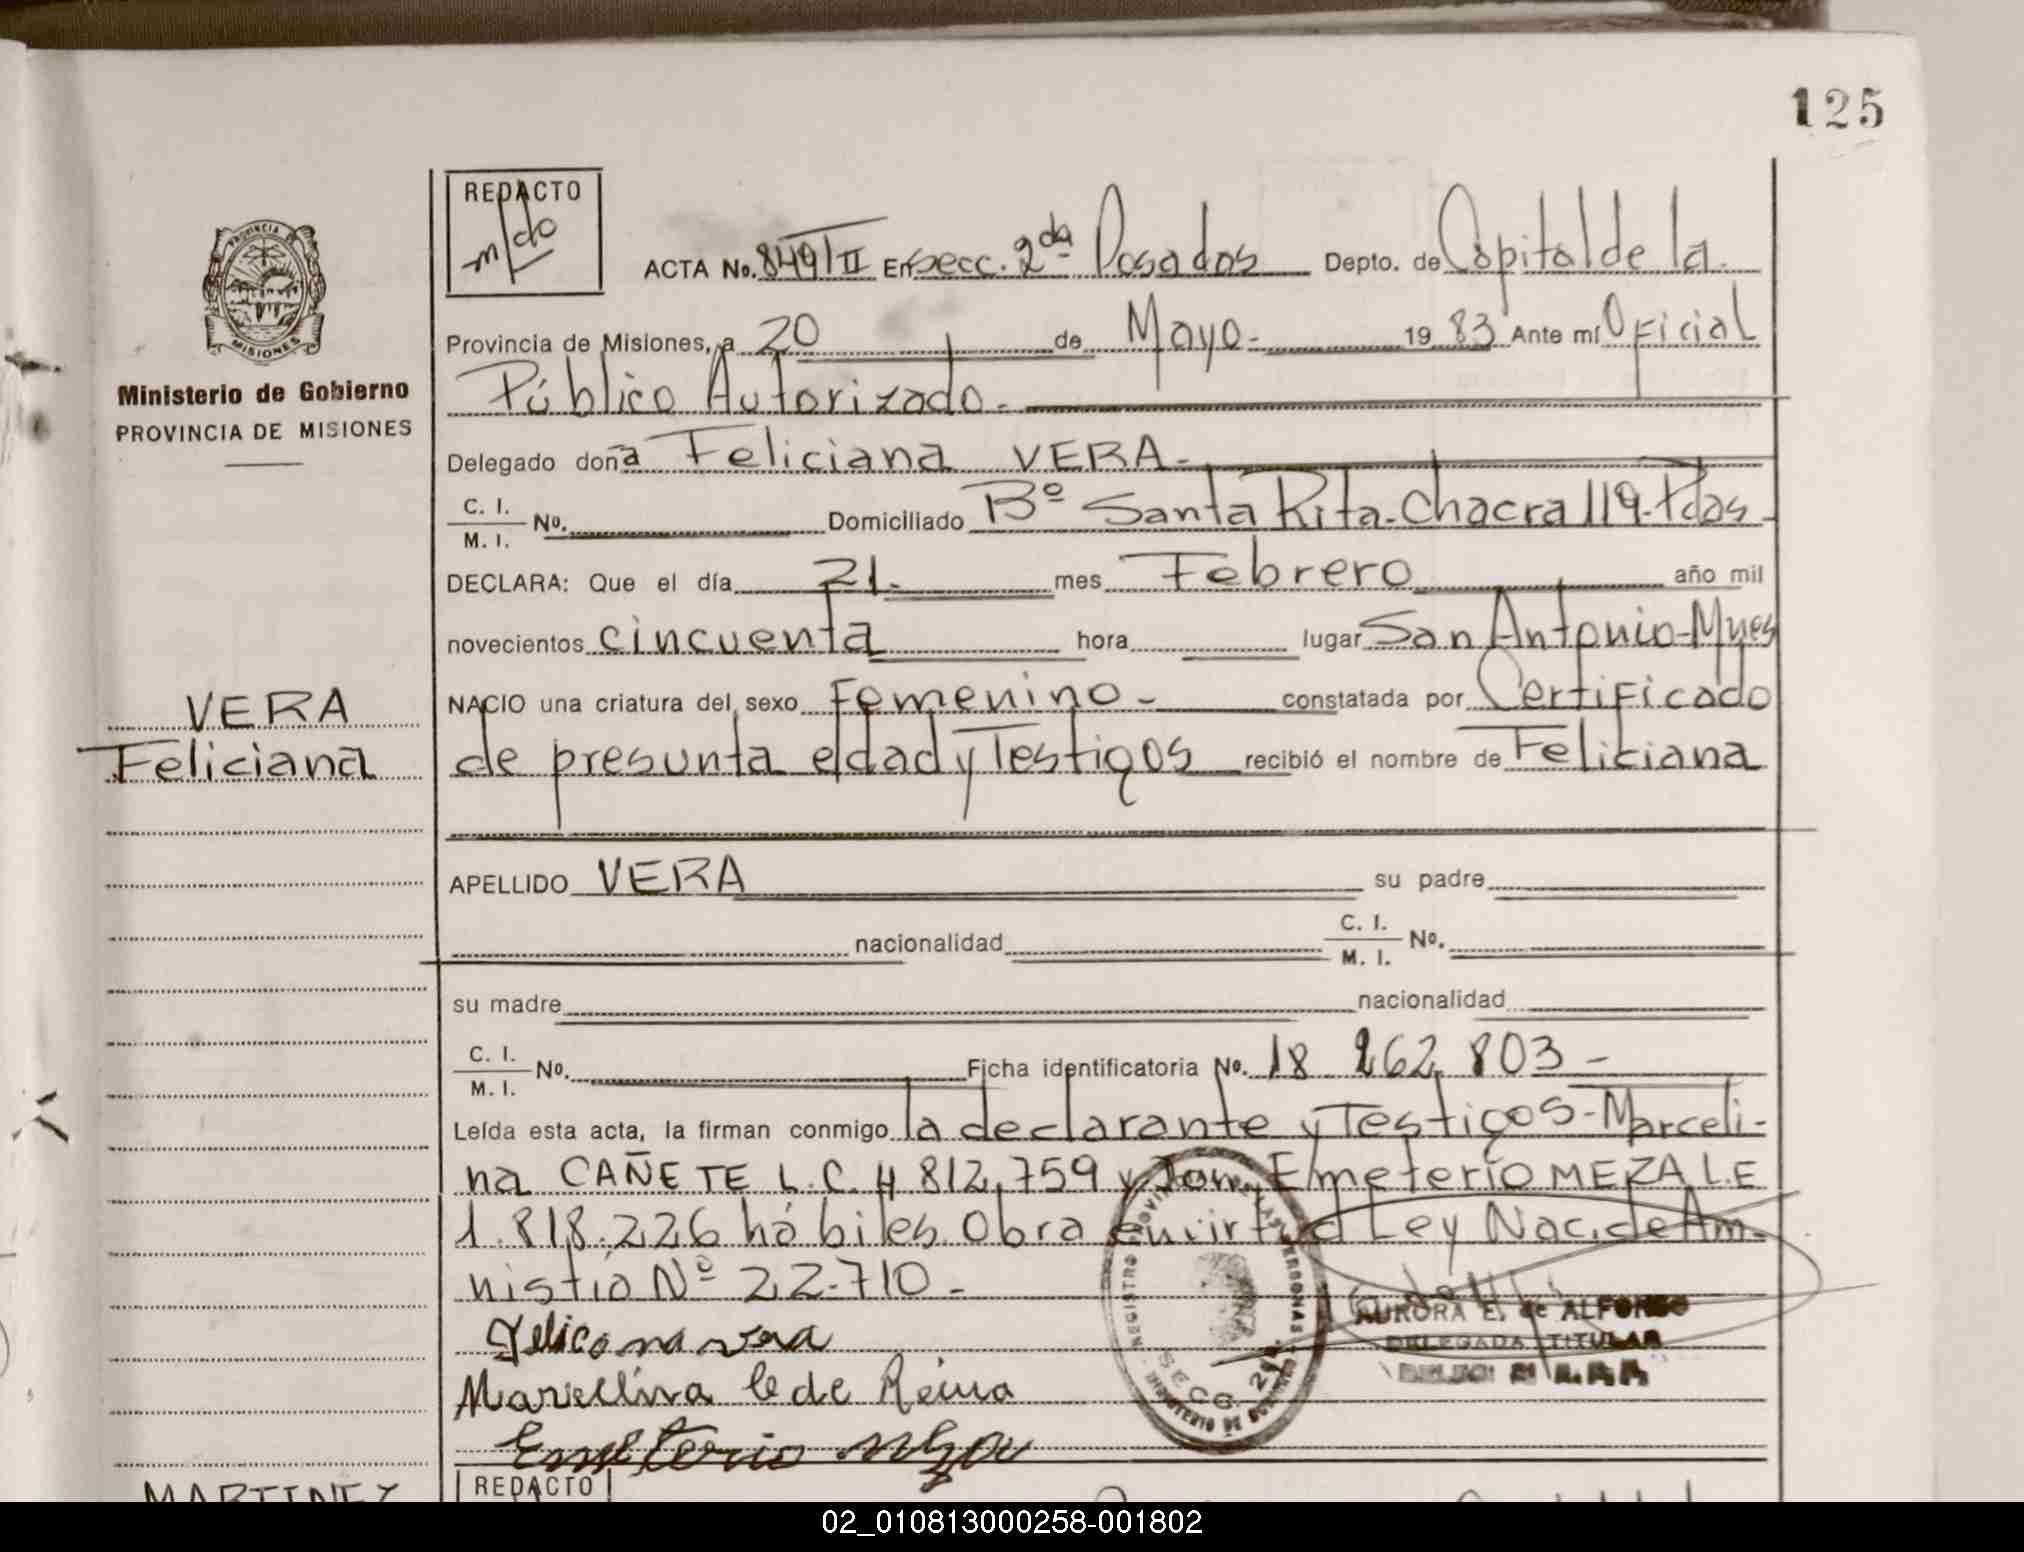 125
REDACTO
PROVINCIA DE
MISIONES
Ministerio de Gobierno
PROVINCIA DE MISIONES
ACTA No. 849/II En secc. 2da Posadas Depto. de Capital de la
Provincia de Misiones, a 20 de Mayo - 1983 Ante mí Oficial
Público Autorizado -
Delegado doña Feliciana VERA -
C. I.
M. I. No. Domiciliado Bº Santa Rita - Chacra 119 - Pdas -
DECLARA: Que el día 21 - mes Febrero año mil
novecientos cincuenta hora lugar San Antonio - Mnes
NACIO una criatura del sexo Femenino - constatada por Certificado
VERA
Feliciana
de presunta eldad y Testigos recibió el nombre de Feliciana
APELLIDO VERA su padre
nacionalidad C. I.
M. I. No.
su madre nacionalidad
C. I.
M. I. No. Ficha identificatoria No. 18 262 803 -
Leída esta acta, la firman conmigo la declarante y Testigos - Marceli-
na CAÑETE L.C. 4 812.759 y Dom. Emeterio MEZA L.E
1.818.226 hábiles. Obra en virtud Ley Nac. de Am-
nistía Nº 22.710 -
Feliciana vera
Marcelina C de Reina
Emeterio Meza
SECC. 2da
AURORA E. de ALFONSO
DELEGADA TITULAR
MARTINEZ
REDACTO
02_010813000258-001802